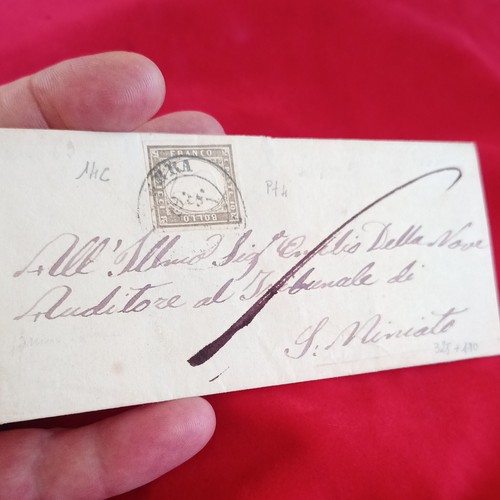 14C
FRANCO
BOLLO
All' Illmo Sigr Emilio Della Nove
Auditore al Tribunale di
S. Miniato